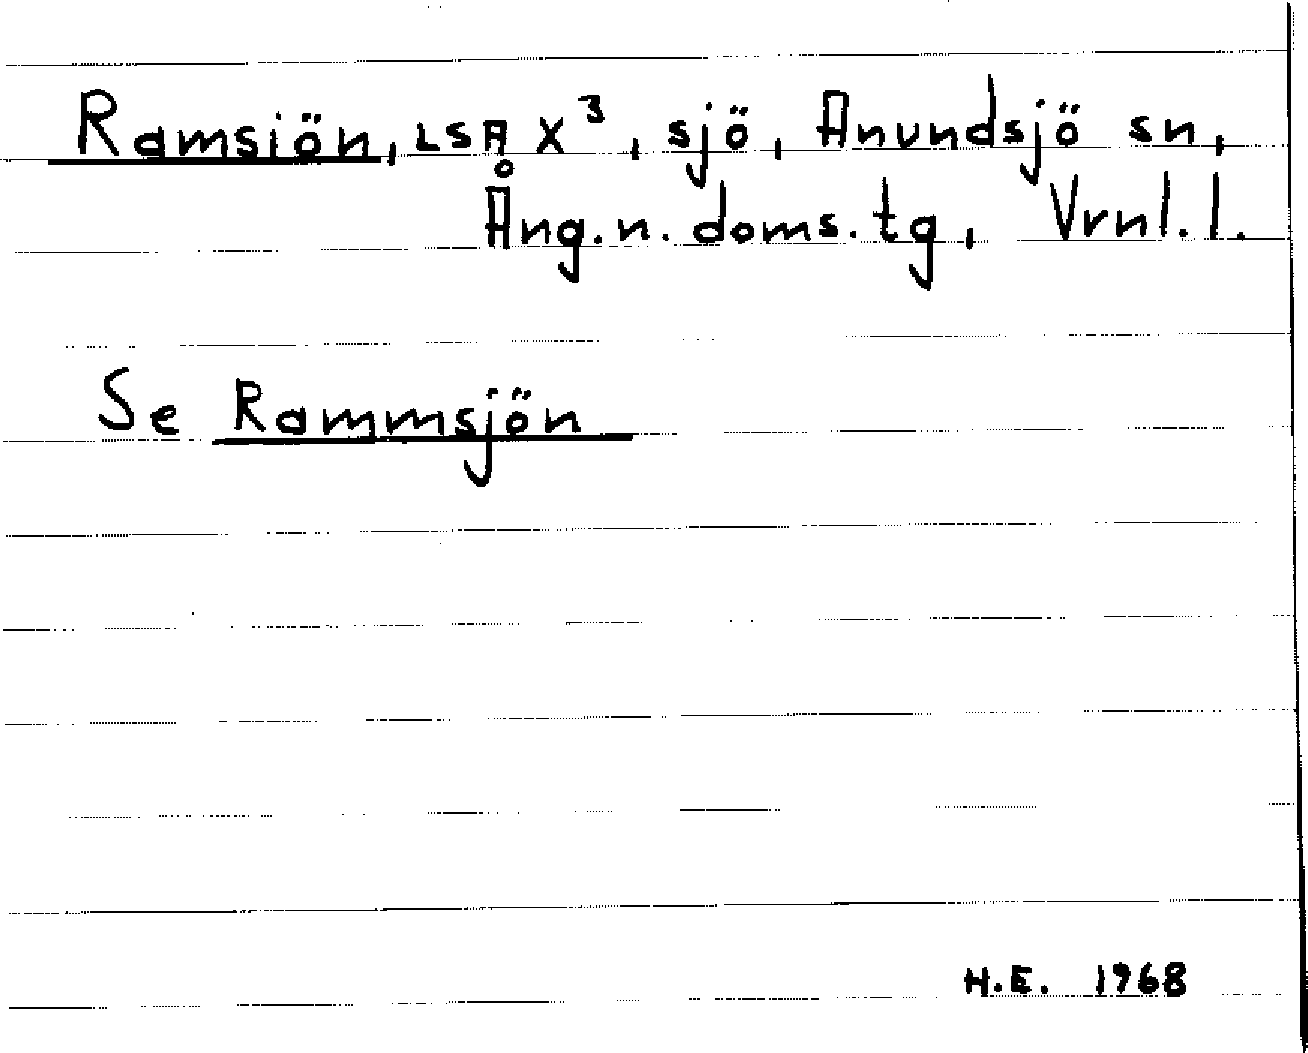 Ramsiön, LSA X³, sjö, Anundsjö sn,
Ång.n. doms.tg, Vrnl.l.
Se Rammsjön
H.E. 1968